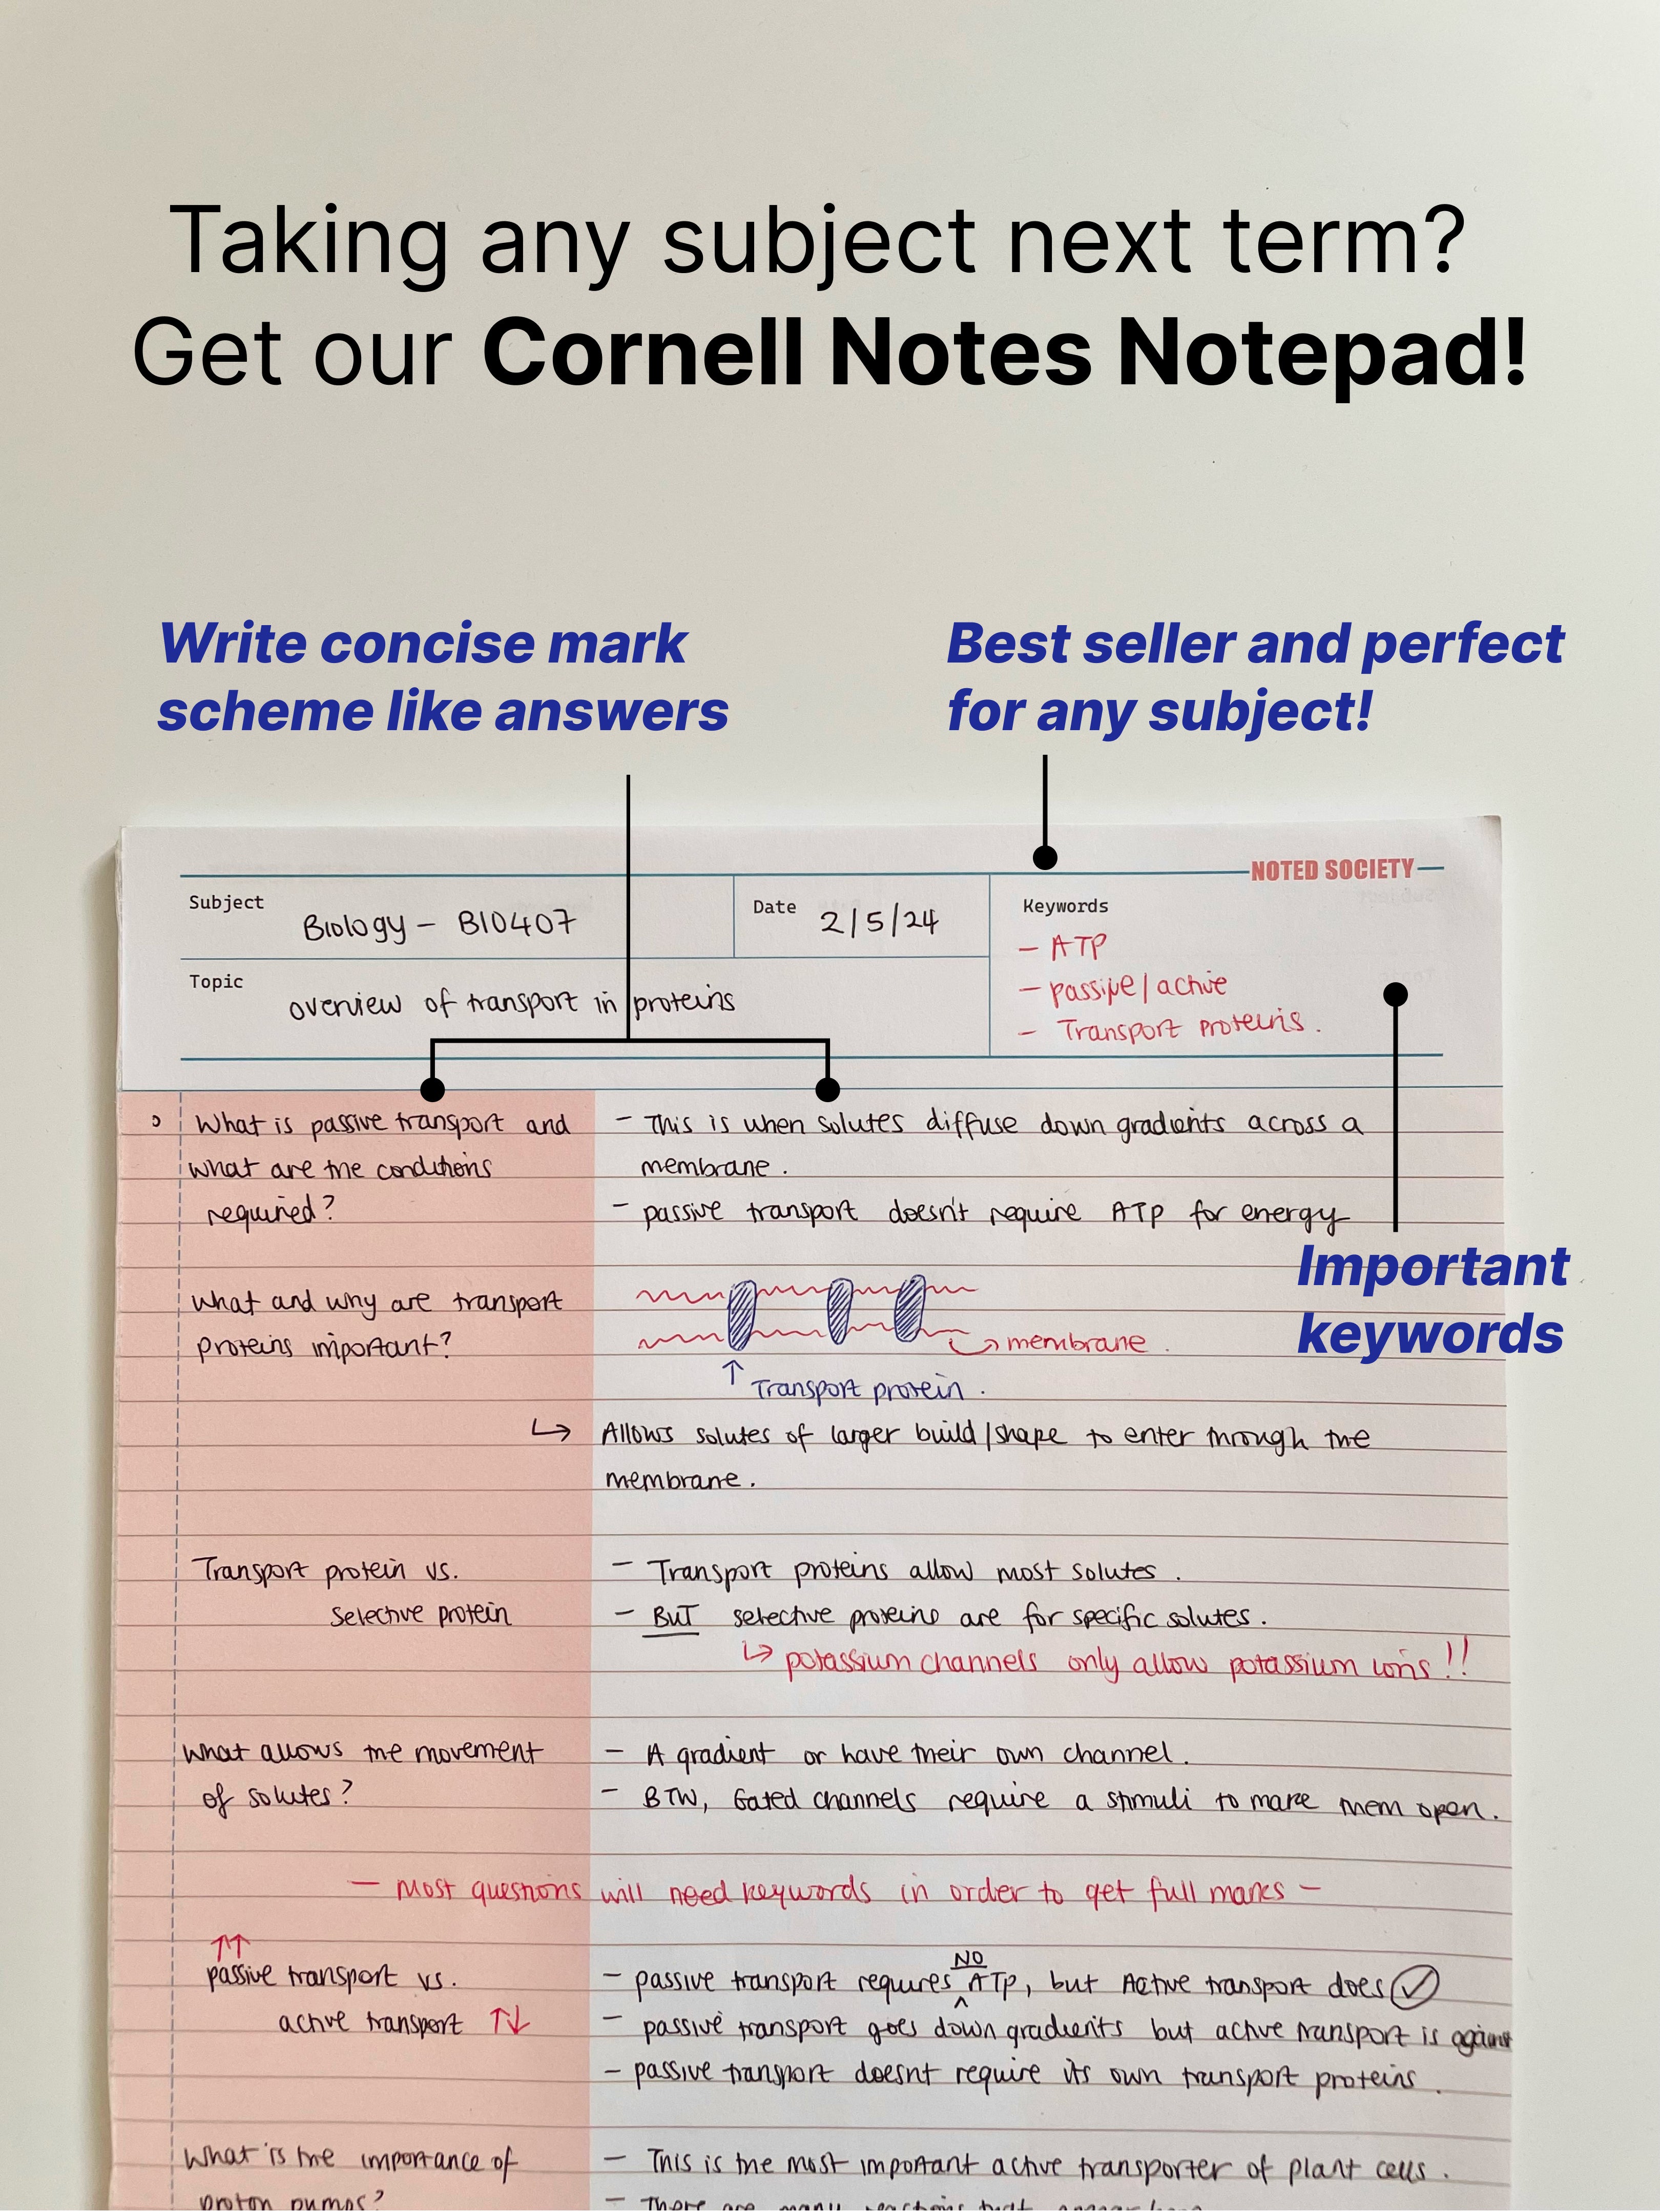 Taking any subject next term?
Get our Cornell Notes Notepad!
Write concise mark
scheme like answers
Best seller and perfect
for any subject!
NOTED SOCIETY
Subject
Biology - BIO407
Date
2/5/24
Keywords
- ATP
- passive/active
- Transport proteins.
Topic
overview of transport in proteins
Important
keywords
What is passive transport and
what are the conditions
required?
- This is when solutes diffuse down gradients across a
membrane.
- passive transport doesn't require ATP for energy
What and why are transport
proteins important?
membrane.
↑ Transport protein.
↳ Allows solutes of larger build/shape to enter through the
membrane.
Transport protein vs.
selective protein
- Transport proteins allow most solutes.
- BUT selective proteins are for specific solutes.
↳ potassium channels only allow potassium ions!!
What allows the movement
of solutes?
- A gradient or have their own channel.
- BTW, Gated channels require a stimuli to make them open.
- Most questions will need keywords in order to get full marks -
↑↑
passive transport vs.
active transport ↑↓
NO
- passive transport requires ^ ATP, but Active transport does ✓
- passive transport goes down gradients but active transport is against
- passive transport doesnt require its own transport proteins.
What is the importance of
proton pumps?
- This is the most important active transporter of plant cells.
- There are many reactions that